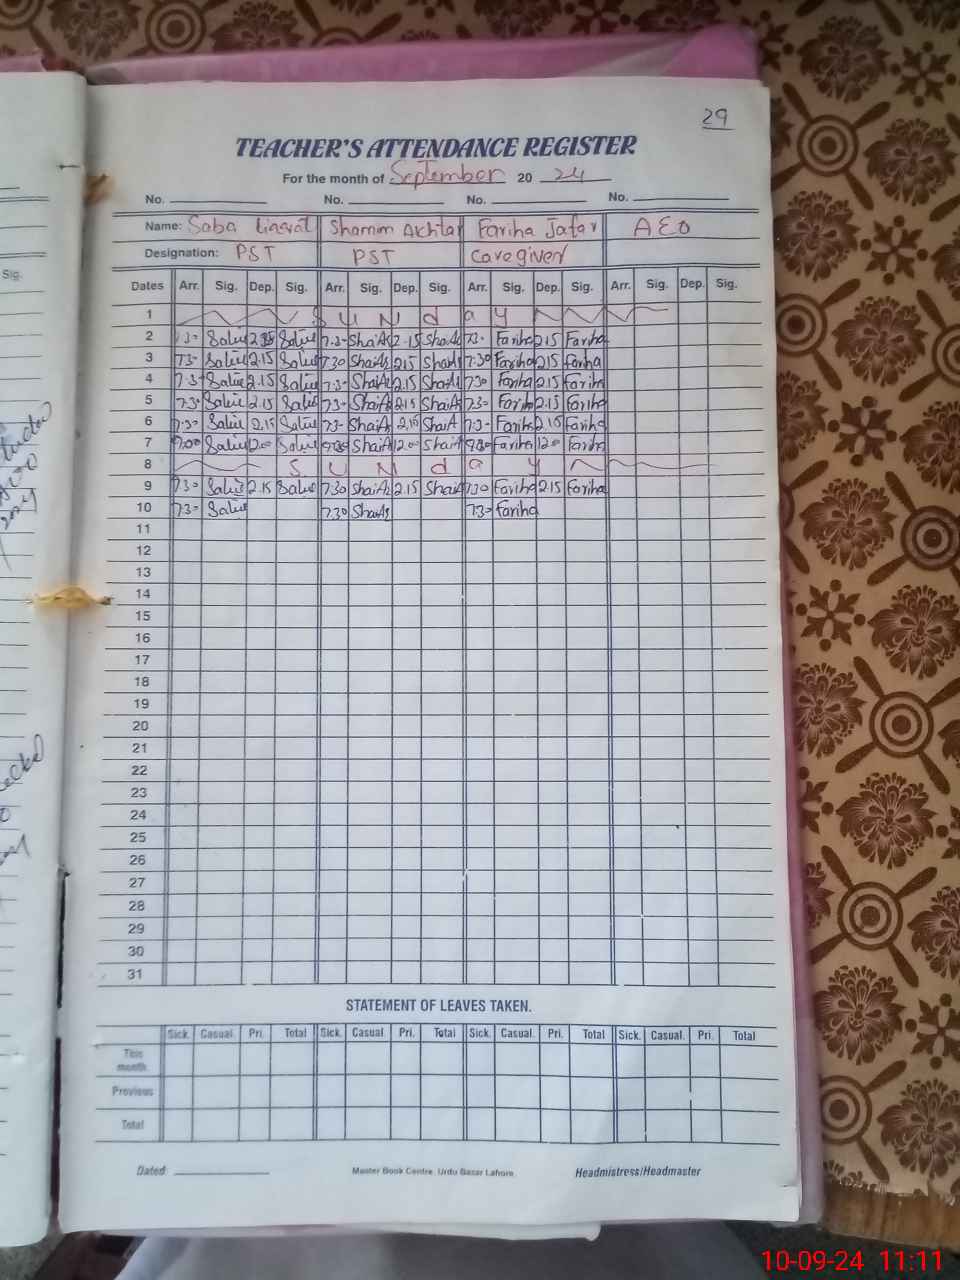 29
TEACHER'S ATTENDANCE REGISTER
For the month of September 20 24
No. No. No. No.
Name: Saba Liaqat Shamim Akhtar Fariha Jafar AEO
Designation: PST PST Caregiver
Sig.
Dates Arr. Sig. Dep. Sig. Arr. Sig. Dep. Sig. Arr. Sig. Dep. Sig. Arr. Sig. Dep. Sig.
1 S u N d a y
2 7.30 2.15 7.30 ShaiAk 2.15 ShaiAk 7.30 Fariha 2.15 Fariha
3 7.30 2.15 7.30 ShaiAk 2.15 ShaiAk 7.30 Fariha 2.15 Fariha
4 7.30 2.15 7.30 ShaiAk 2.15 ShaiAk 7.30 Fariha 2.15 Fariha
5 7.30 2.15 7.30 ShaiAk 2.15 ShaiAk 7.30 Fariha 2.15 Fariha
6 7.30 2.15 7.30 ShaiAk 2.15 ShaiAk 7.30 Fariha 2.15 Fariha
7 12.00 ShaiAk 12.00 ShaiAk Fariha 12.00 Fariha
8 S u N d a y
9 7.30 2.15 7.30 ShaiAk 2.15 ShaiAk 7.30 Fariha 2.15 Fariha
10 7.30 7.30 ShaiAk 7.30 Fariha
11
12
13
14
15
16
17
18
19
20
21
22
23
24
25
26
27
28
29
30
31
STATEMENT OF LEAVES TAKEN.
Sick. Casual. Pri. Total Sick. Casual. Pri. Total Sick. Casual. Pri. Total Sick. Casual. Pri. Total
This month.
Previous
Total
Dated Master Book Centre Urdu Bazar Lahore. Headmistress/Headmaster
10-09-24 11:11